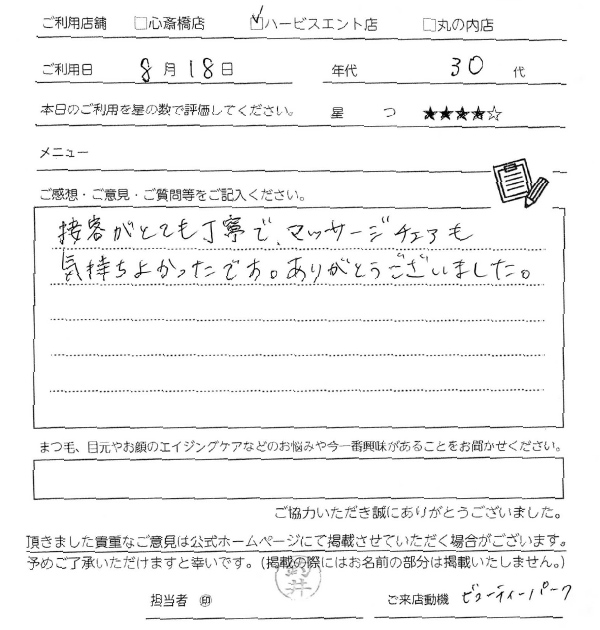 ご利用店舗 □心斎橋店 ☑ハービスエント店 □丸の内店
ご利用日 8月18日 年代 30代
本日のご利用を星の数で評価してください。 星 つ ★★★★☆
メニュー
ご感想・ご意見・ご質問等をご記入ください。
接客がとても丁寧で、マッサージチェアも
気持ちよかったです。ありがとうございました。
まつ毛、目元やお顔のエイジングケアなどのお悩みや今一番興味があることをお聞かせください。
ご協力いただき誠にありがとうございました。
頂きました貴重なご意見は公式ホームページにて掲載させていただく場合がございます。
予めご了承いただけますと幸いです。(掲載の際にはお名前の部分は掲載いたしません。)
担当者 ㊞ ご来店動機 ビューティーパーク